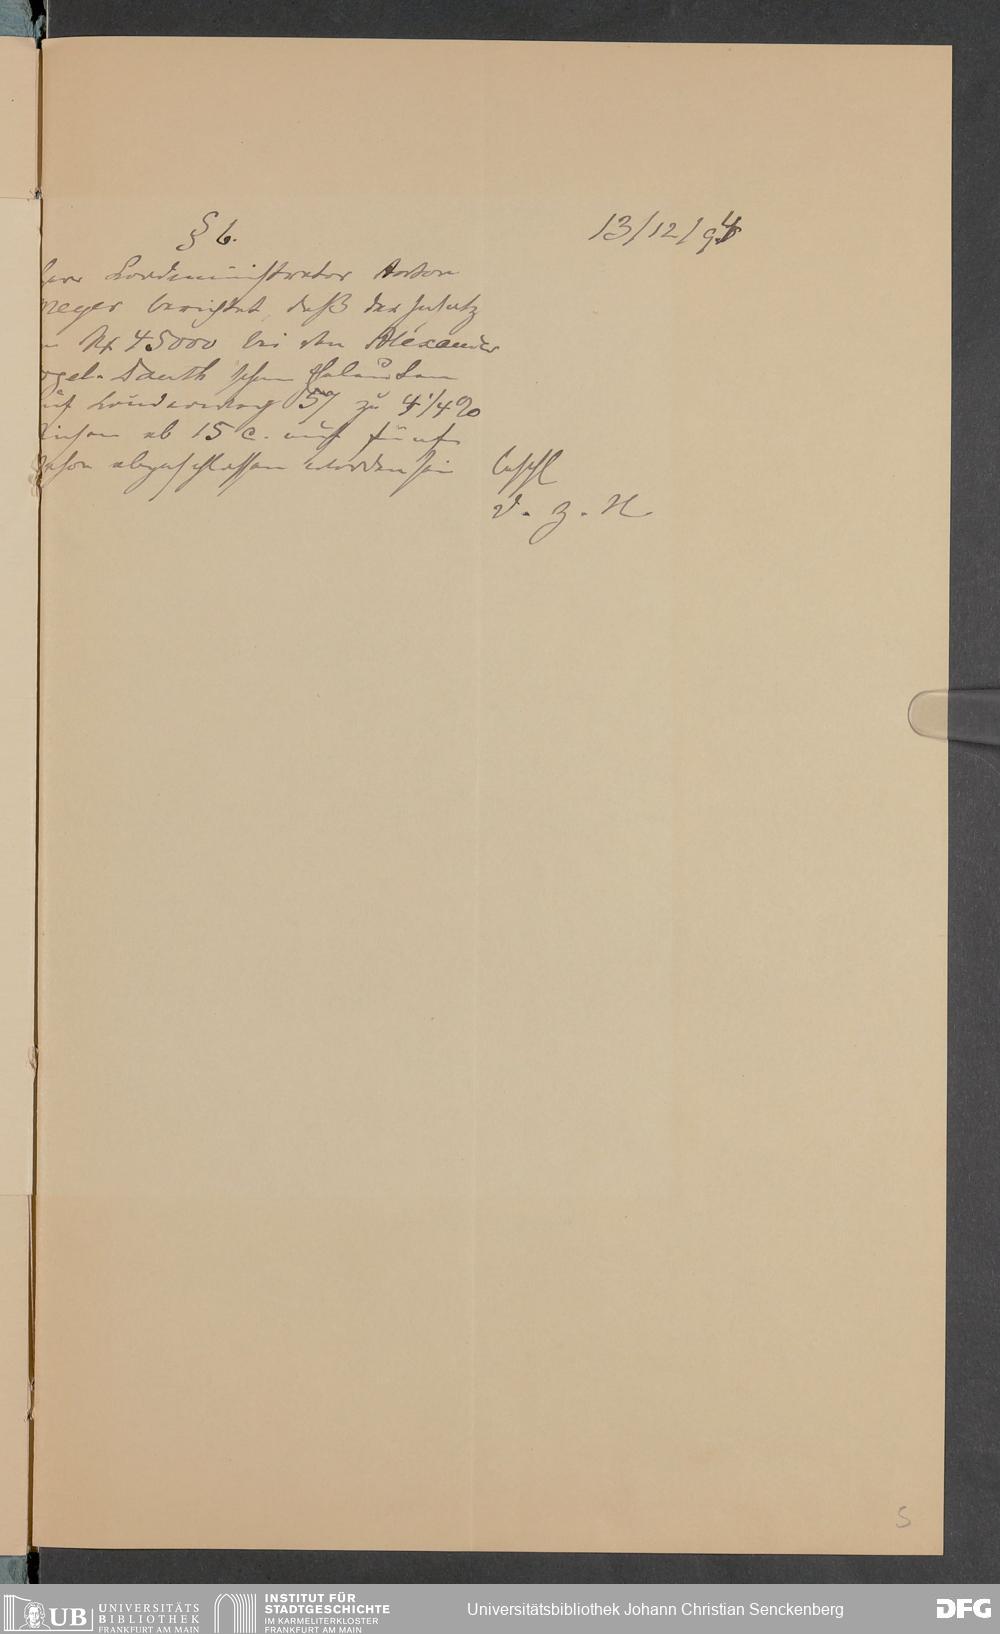 § 6.
13/12/94
Herr Condministrator Anton
meyer berichtet, daß der Insatz
Mk 45000 bei den Alexander
Dauth'schen Eheleuten
auf 57 zu 4 1/4 %
Zinsen ab 15 c. auf fünf
Jahre abgeschlossen worden sei
Beschl
D. z. N
5
UB UNIVERSITÄTS
BIBLIOTHEK
FRANKFURT AM MAIN
INSTITUT FÜR
STADTGESCHICHTE
IM KARMELITERKLOSTER
FRANKFURT AM MAIN
Universitätsbibliothek Johann Christian Senckenberg
DFG